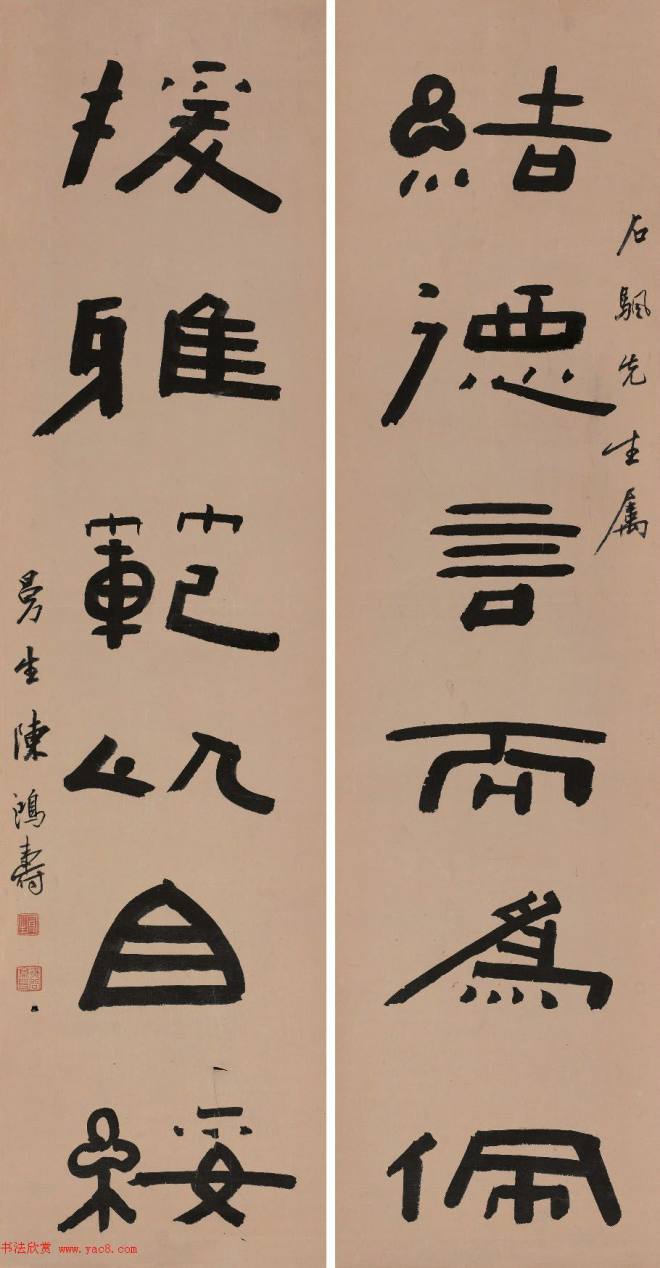 石飄先生属
結德言而為佩
援雅範以自綏
曼生陳鴻壽
书法欣赏 www.yac8.com